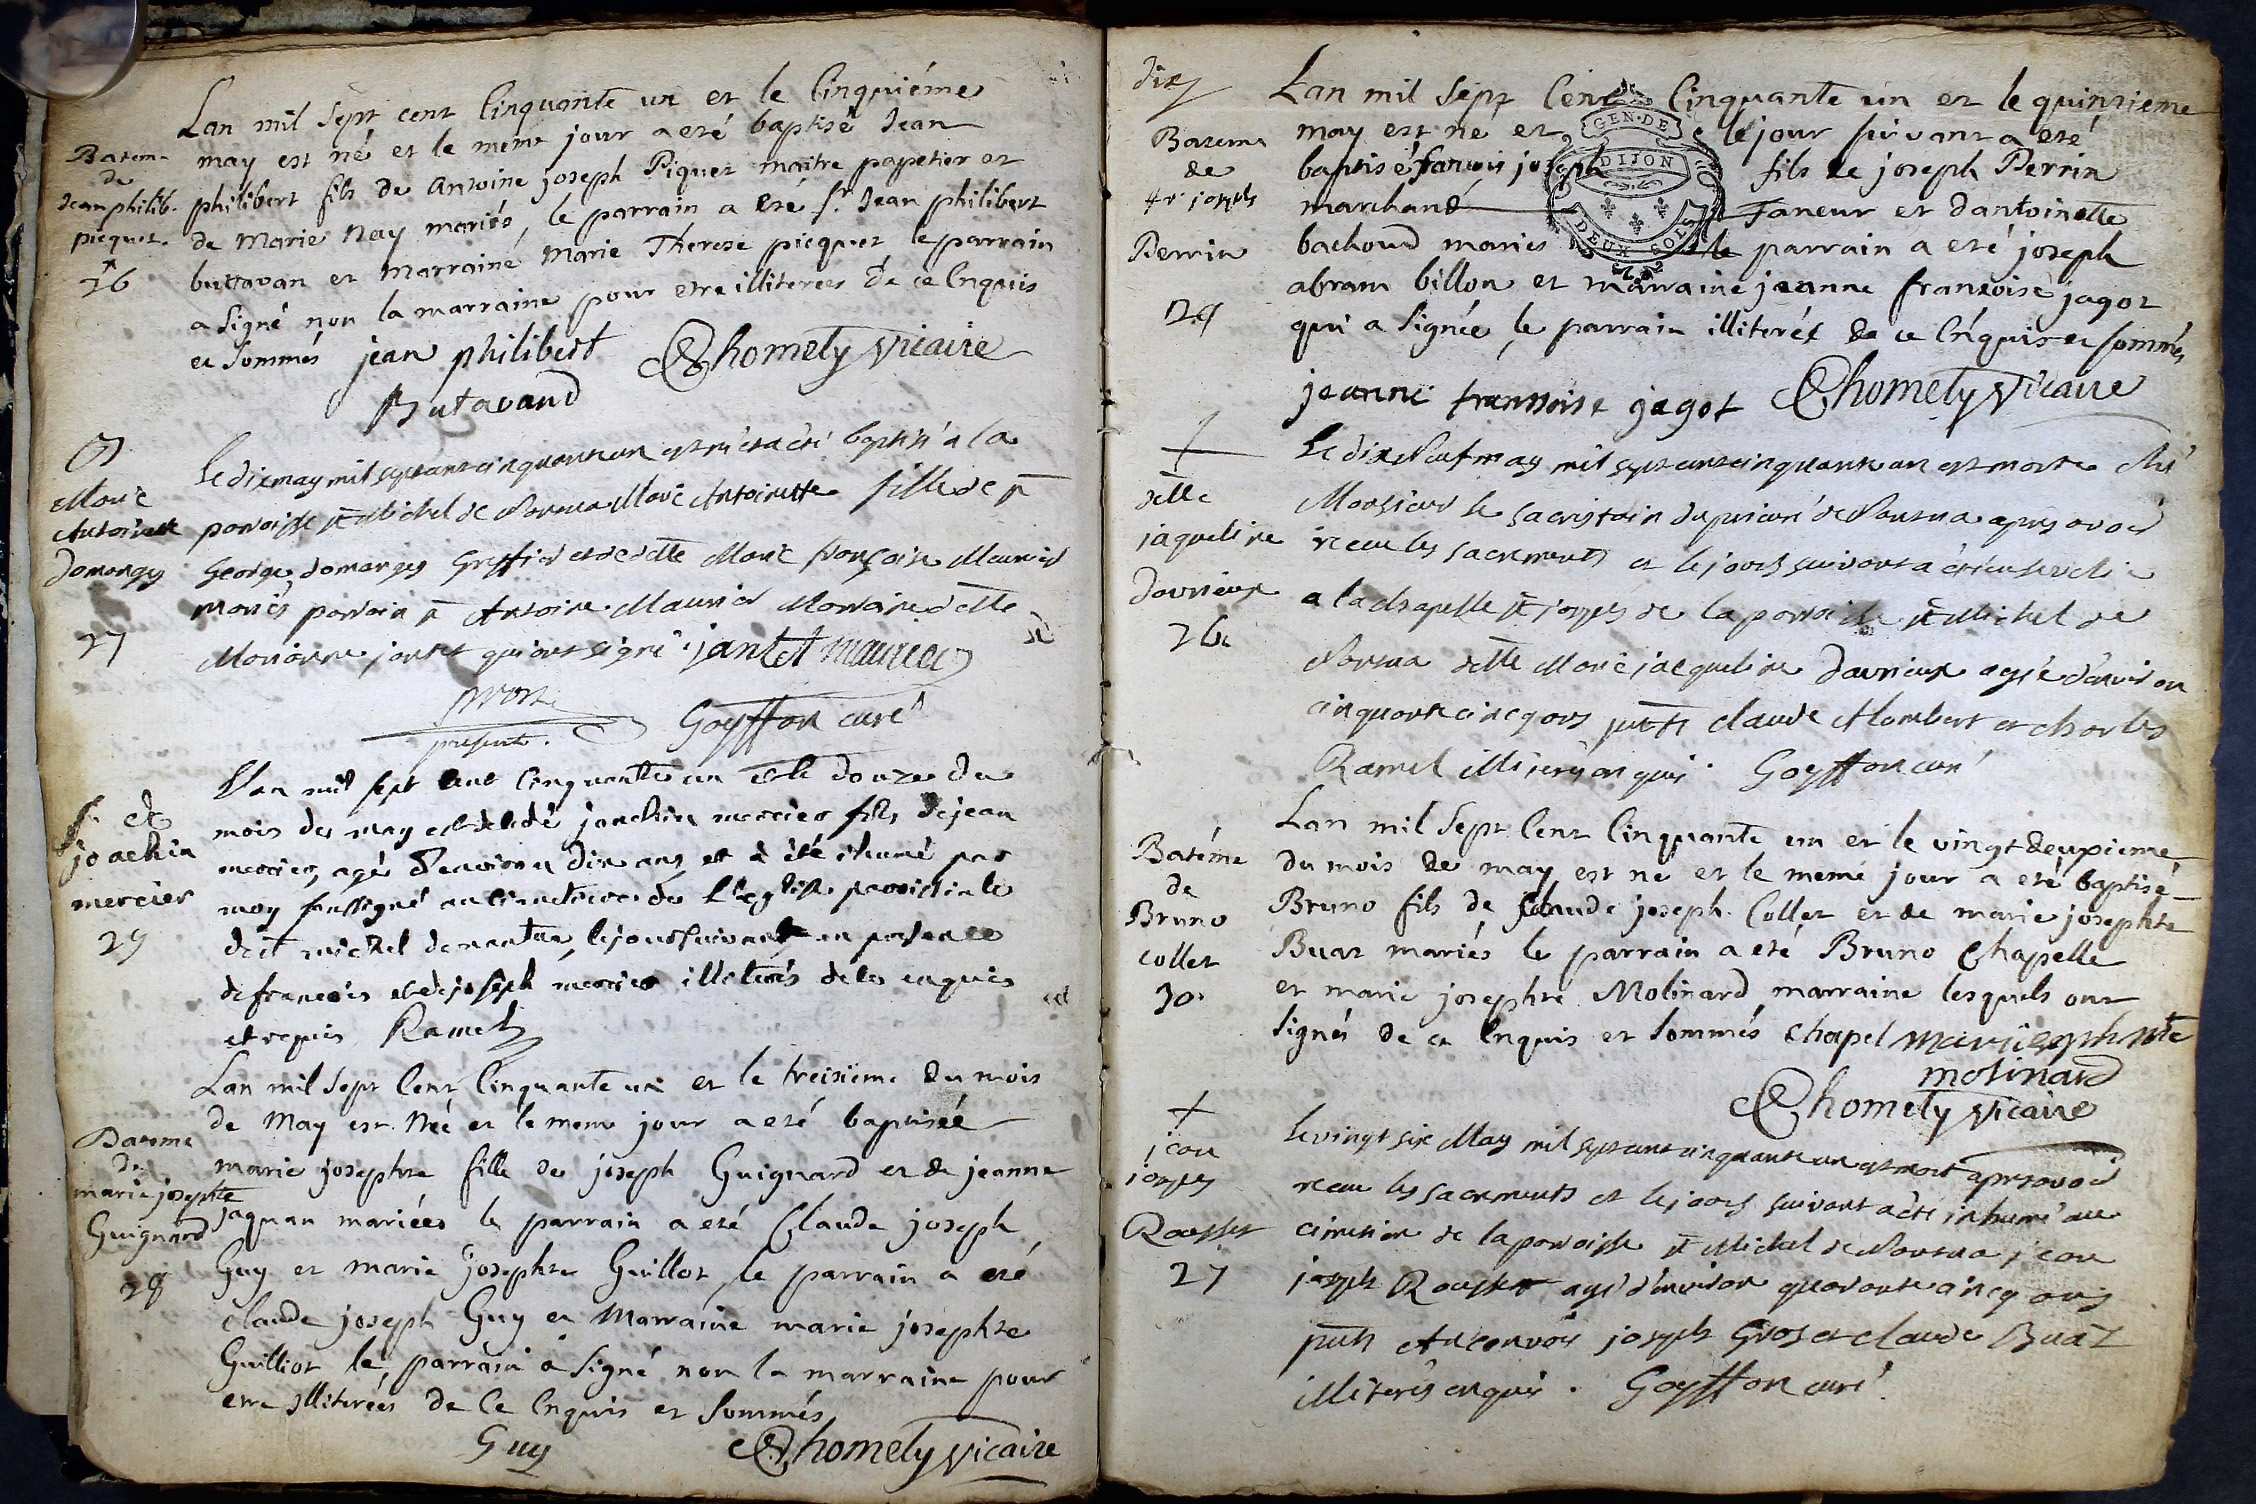 Batem
de
Jean philib.
picquet.
26
Lan mil Sept cent Cinquante un et le Cinquiéme
may est né et le meme jour a eté baptisé Jean
philibert fils de Antoine joseph Piquet maitre papetier et
de Marie Nay mariés, le parrain a eté Sr Jean philibert
buttavan et Marraine Marie Therese picquet le parrain
a Signé non la marraine pour etre illiterées de ce Enquis
et Sommés jean philibert Chomety Vicaire
Butavand
Marie
Antoinette
domanges
27
Le dix may mil sept cent cinquante un est né et a été baptisé a la
parroisse st Michel de Nantua Marie Antoinette fille de sr
George domanges Greffier et de delle Marie françoise Maurier
mariés parrain sr Antoine Maurier Marraine delle
Marianne jantet qui ont signé jantet maurier
present. Goyffon curé
joachin
mercier
29
L'an mil sept cent Cinquante un et le douze du
mois de may est décédé joachin mercier fils de jean
mercier, agé d'environ dix ans et a été ihumé par
moy soussigné au cimetiere de l'eglise parroissiale
de st michel de nantua, le jour suivant en presence
de francois et de joseph mercier illiterés de les enquis
et requis Ramel
Bateme
de
marie josephte
Guignard
28
Lan mil Sept Cent Cinquante un et le treisiéme du mois
de May est Née et le meme jour a eté baptisée
marie josephte fille de joseph Guignard et de jeanne
jaquan mariées le parrain a eté Claude joseph
Guy et marie josephte Guillot, le parrain a eté
Claude joseph Guy et Marraine marie josephte
Guilliot le parrain a Signé non la marraine pour
etre illiterées de Ce Enquis et Sommés
Guy Chomety Vicaire
dix
Batem
de
fr joseph
Perrin
29
Lan mil Sept Cent Cinquante un et le quinzieme
may est né et le jour suivant a eté
baptisé francois joseph fils de joseph Perrin
marchand Taneur et dantoinette
bachoud mariés le parrain a eté joseph
abram billon et marraine jeanne francoise jagot
qui a Signée, le parrain illiterét de ce Enquis et sommés
jeanne franssoise jagot Chomety Vicaire
GEN. DE
DIJON
DEUX SOLS
delle
jaqueline
davrieux
26
Le dix Neuf may mil sept cent cinquante un est morte chés
Monsieur le sacristain du prieuré de Nantua apres avoir
receu les sacrements et le jour suivant a été ensevelie
a la chapelle st joseph de la parroisse st Michel de
Nantua delle Marie jacqueline Davrieux agée d'environ
cinquante cinq ans pnts Claude Alombert et charles
Ramel illiterés enquis. Goyffon curé
Batéme
de
Bruno
collet
30
Lan mil Sept Cent Cinquante un et le vingt deuxieme
du mois de may est ne et le meme jour a eté baptisé
Bruno fils de Claude joseph Collet et de marie josephte
Buat mariés le parrain a eté Bruno Chapelle
et marie josephte Molinard marraine lesquels ont
Signés de ce Enquis et Sommés Chapel
molinard
Chomety Vicaire
jean
joseph
Rousset
27
Le vingt six May mil sept cent cinquante un est mort apres avoir
receu les sacrements et le jour suivant a été inhumé au
cimetiere de la parroisse st Michel de Nantua jean
joseph Rousset agé d'environ quarante cinq ans
pnts Au convoy joseph Gros et claude Buat
illiterés enquis. Goyffon curé